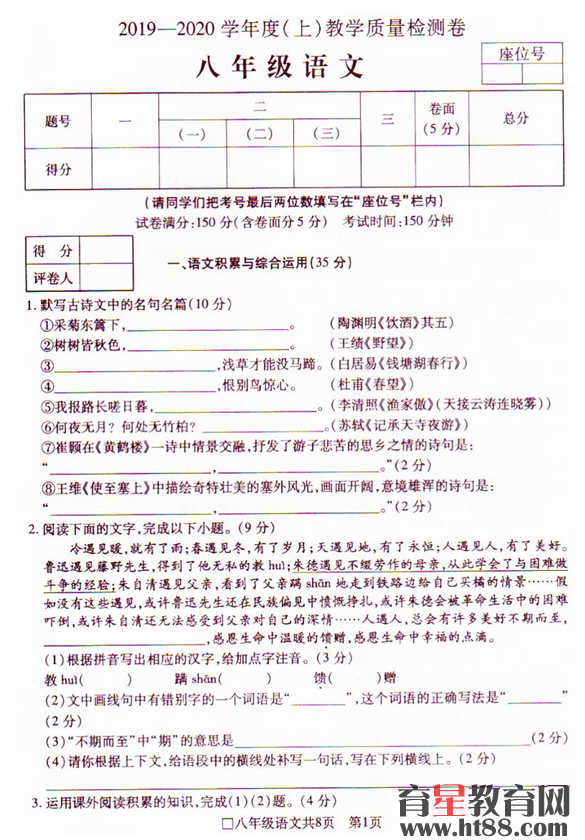 2019—2020学年度(上)教学质量检测卷
八年级语文
座位号
题号 一 二 三 卷面(5分) 总分
(一) (二) (三)
得分
(请同学们把考号最后两位数填写在“座位号”栏内)
试卷满分:150分(含卷面分5分) 考试时间:150分钟
得 分
评卷人
一、语文积累与综合运用(35分)
1.默写古诗文中的名句名篇(10分)
①采菊东篱下,________。 (陶渊明《饮酒》其五)
②树树皆秋色,________。 (王绩《野望》)
③________,浅草才能没马蹄。(白居易《钱塘湖春行》)
④________,恨别鸟惊心。 (杜甫《春望》)
⑤我报路长嗟日暮,________。(李清照《渔家傲》(天接云涛连晓雾))
⑥何夜无月?何处无竹柏?________。(苏轼《记承天寺夜游》)
⑦崔颢在《黄鹤楼》一诗中情景交融,抒发了游子悲苦的思乡之情的诗句是:
“________,________。”(2分)
⑧王维《使至塞上》中描绘奇特壮美的塞外风光,画面开阔,意境雄浑的诗句是:
“________,________。”(2分)
2.阅读下面的文字,完成以下小题。(9分)
冷遇见暖,就有了雨;春遇见冬,有了岁月;天遇见地,有了永恒;人遇见人,有了美好。
鲁迅遇见藤野先生,得到了他无私的教huì;朱德遇见不缀劳作的母亲,从此学会了与困难做
斗争的经验;朱自清遇见父亲,看到了父亲蹒shān地走到铁路边给自己买橘的情景……假
如没有这些遇见,或许鲁迅先生还在民族偏见中愤慨挣扎,或许朱德会被革命生活中的困难
吓倒,或许朱自清还无法感受到父亲对自己的深情……人遇人,总会有许多美好不期而至,
________,感恩生命中温暖的馈赠,感恩生命中幸福的点滴。
(1)根据拼音写出相应的汉字,给加点字注音。(3分)
教huì( ) 蹒shān( ) 馈( )赠
(2)文中画线句中有错别字的一个词语是“________”,这个词语的正确写法是“________”
(2分)
(3)“不期而至”中“期”的意思是________(2分)
(4)请你根据上下文,给语段中的横线处补写一句话,写在下列横线上。(2分)
3.运用课外阅读积累的知识,完成(1)(2)题。(4分)
□八年级语文共8页 第1页
育星教育网
www.ht88.com